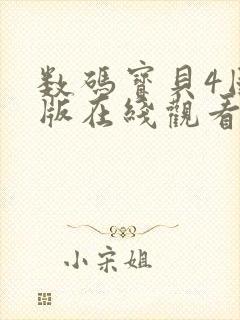 数碼寶貝4
版在綫觀看
小宋姐